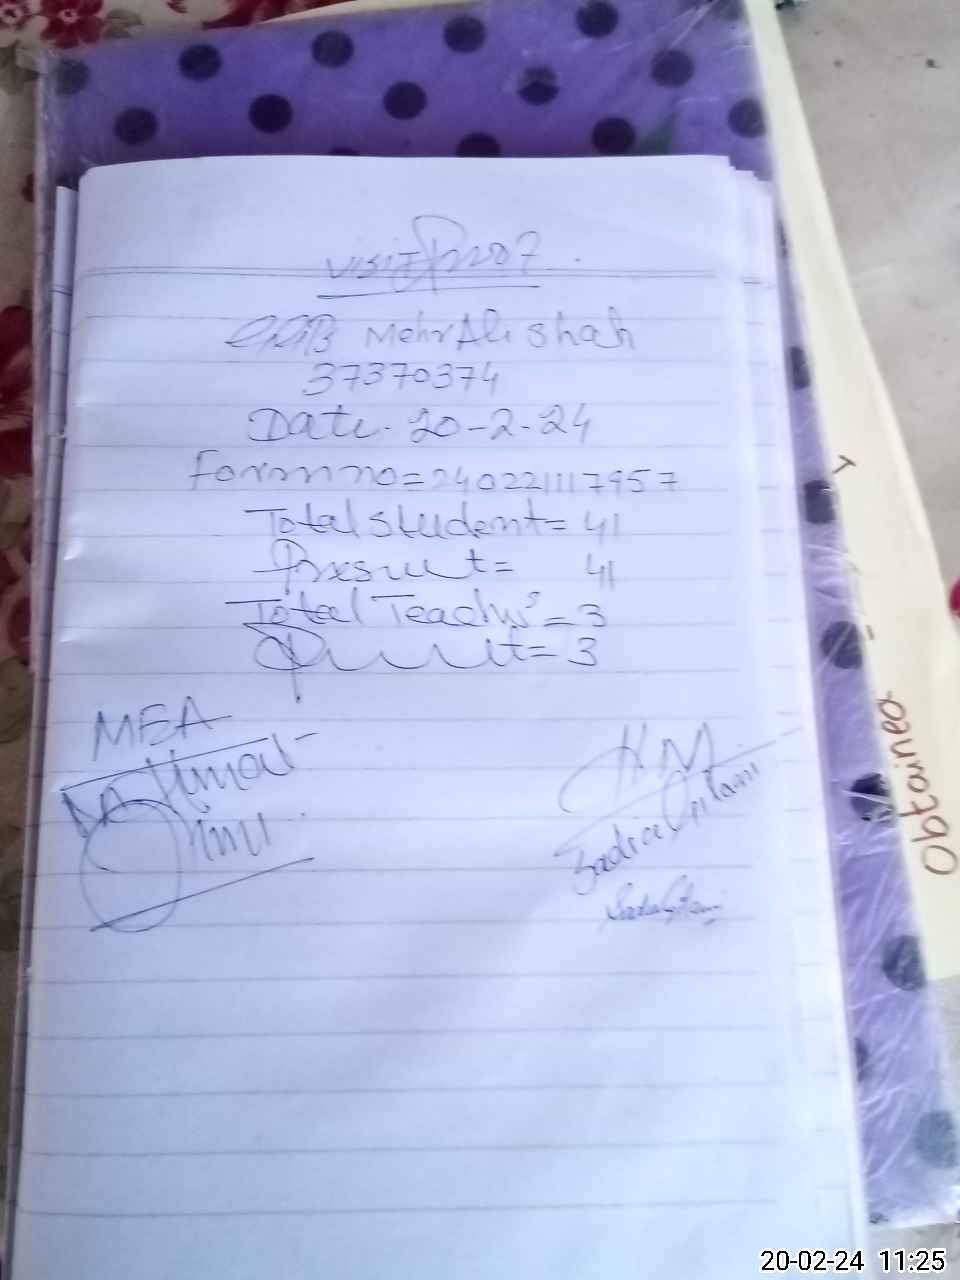 Mehr Ali Shah
37370374
Date. 20-2-24
Form no=240221117957
Total student= 41
Present= 41
Total Teachers=3
Present=3
MEA
HM
Sadia Gilani
Obtained
20-02-24 11:25